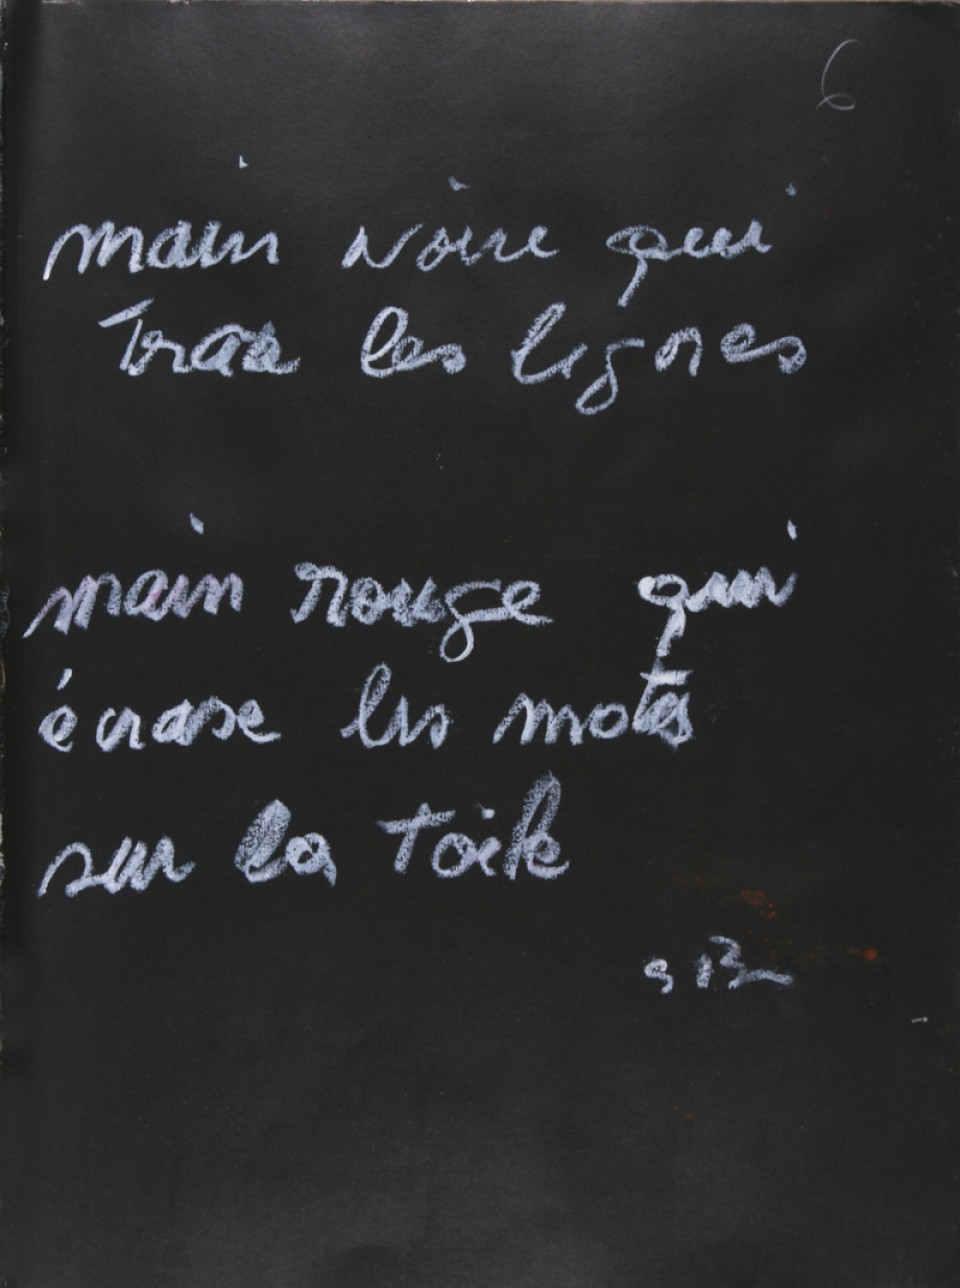 6
main noire qui
Trace les lignes
main rouge qui
écrase les mots
sur la toile